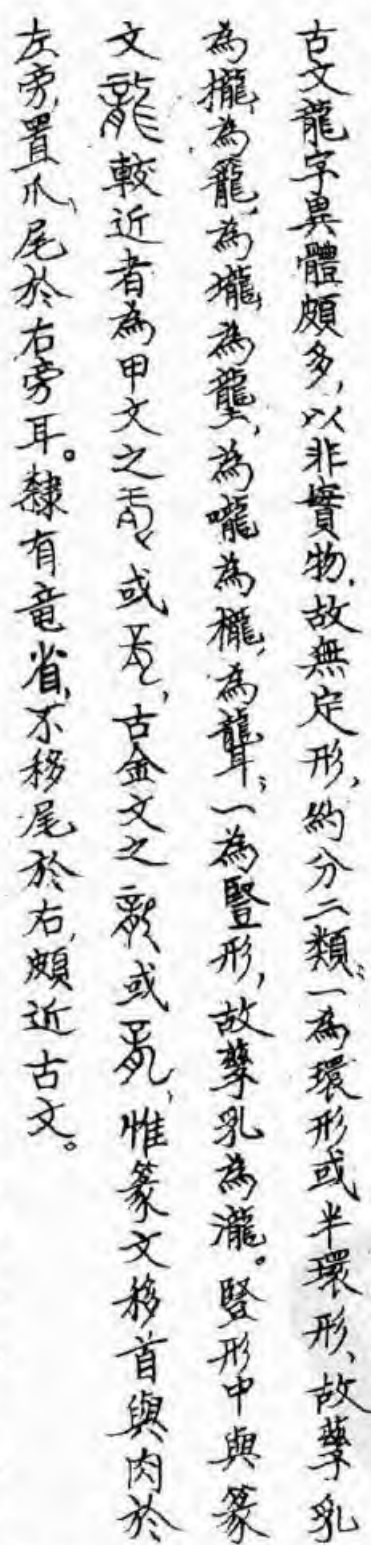 古文龍字異體頗多，以非實物，故無定形，約分二類；一為環形或半環形，故孳乳
為攏，為籠，為壠，為壟，為嚨，為櫳，為聾；一為豎形，故孳乳為瀧。豎形中與篆
文較近者為甲文之或，古金文之或，惟篆文移首與肉於
左旁，置爪、尾於右旁耳。隸有竜省，不移尾於右，頗近古文。